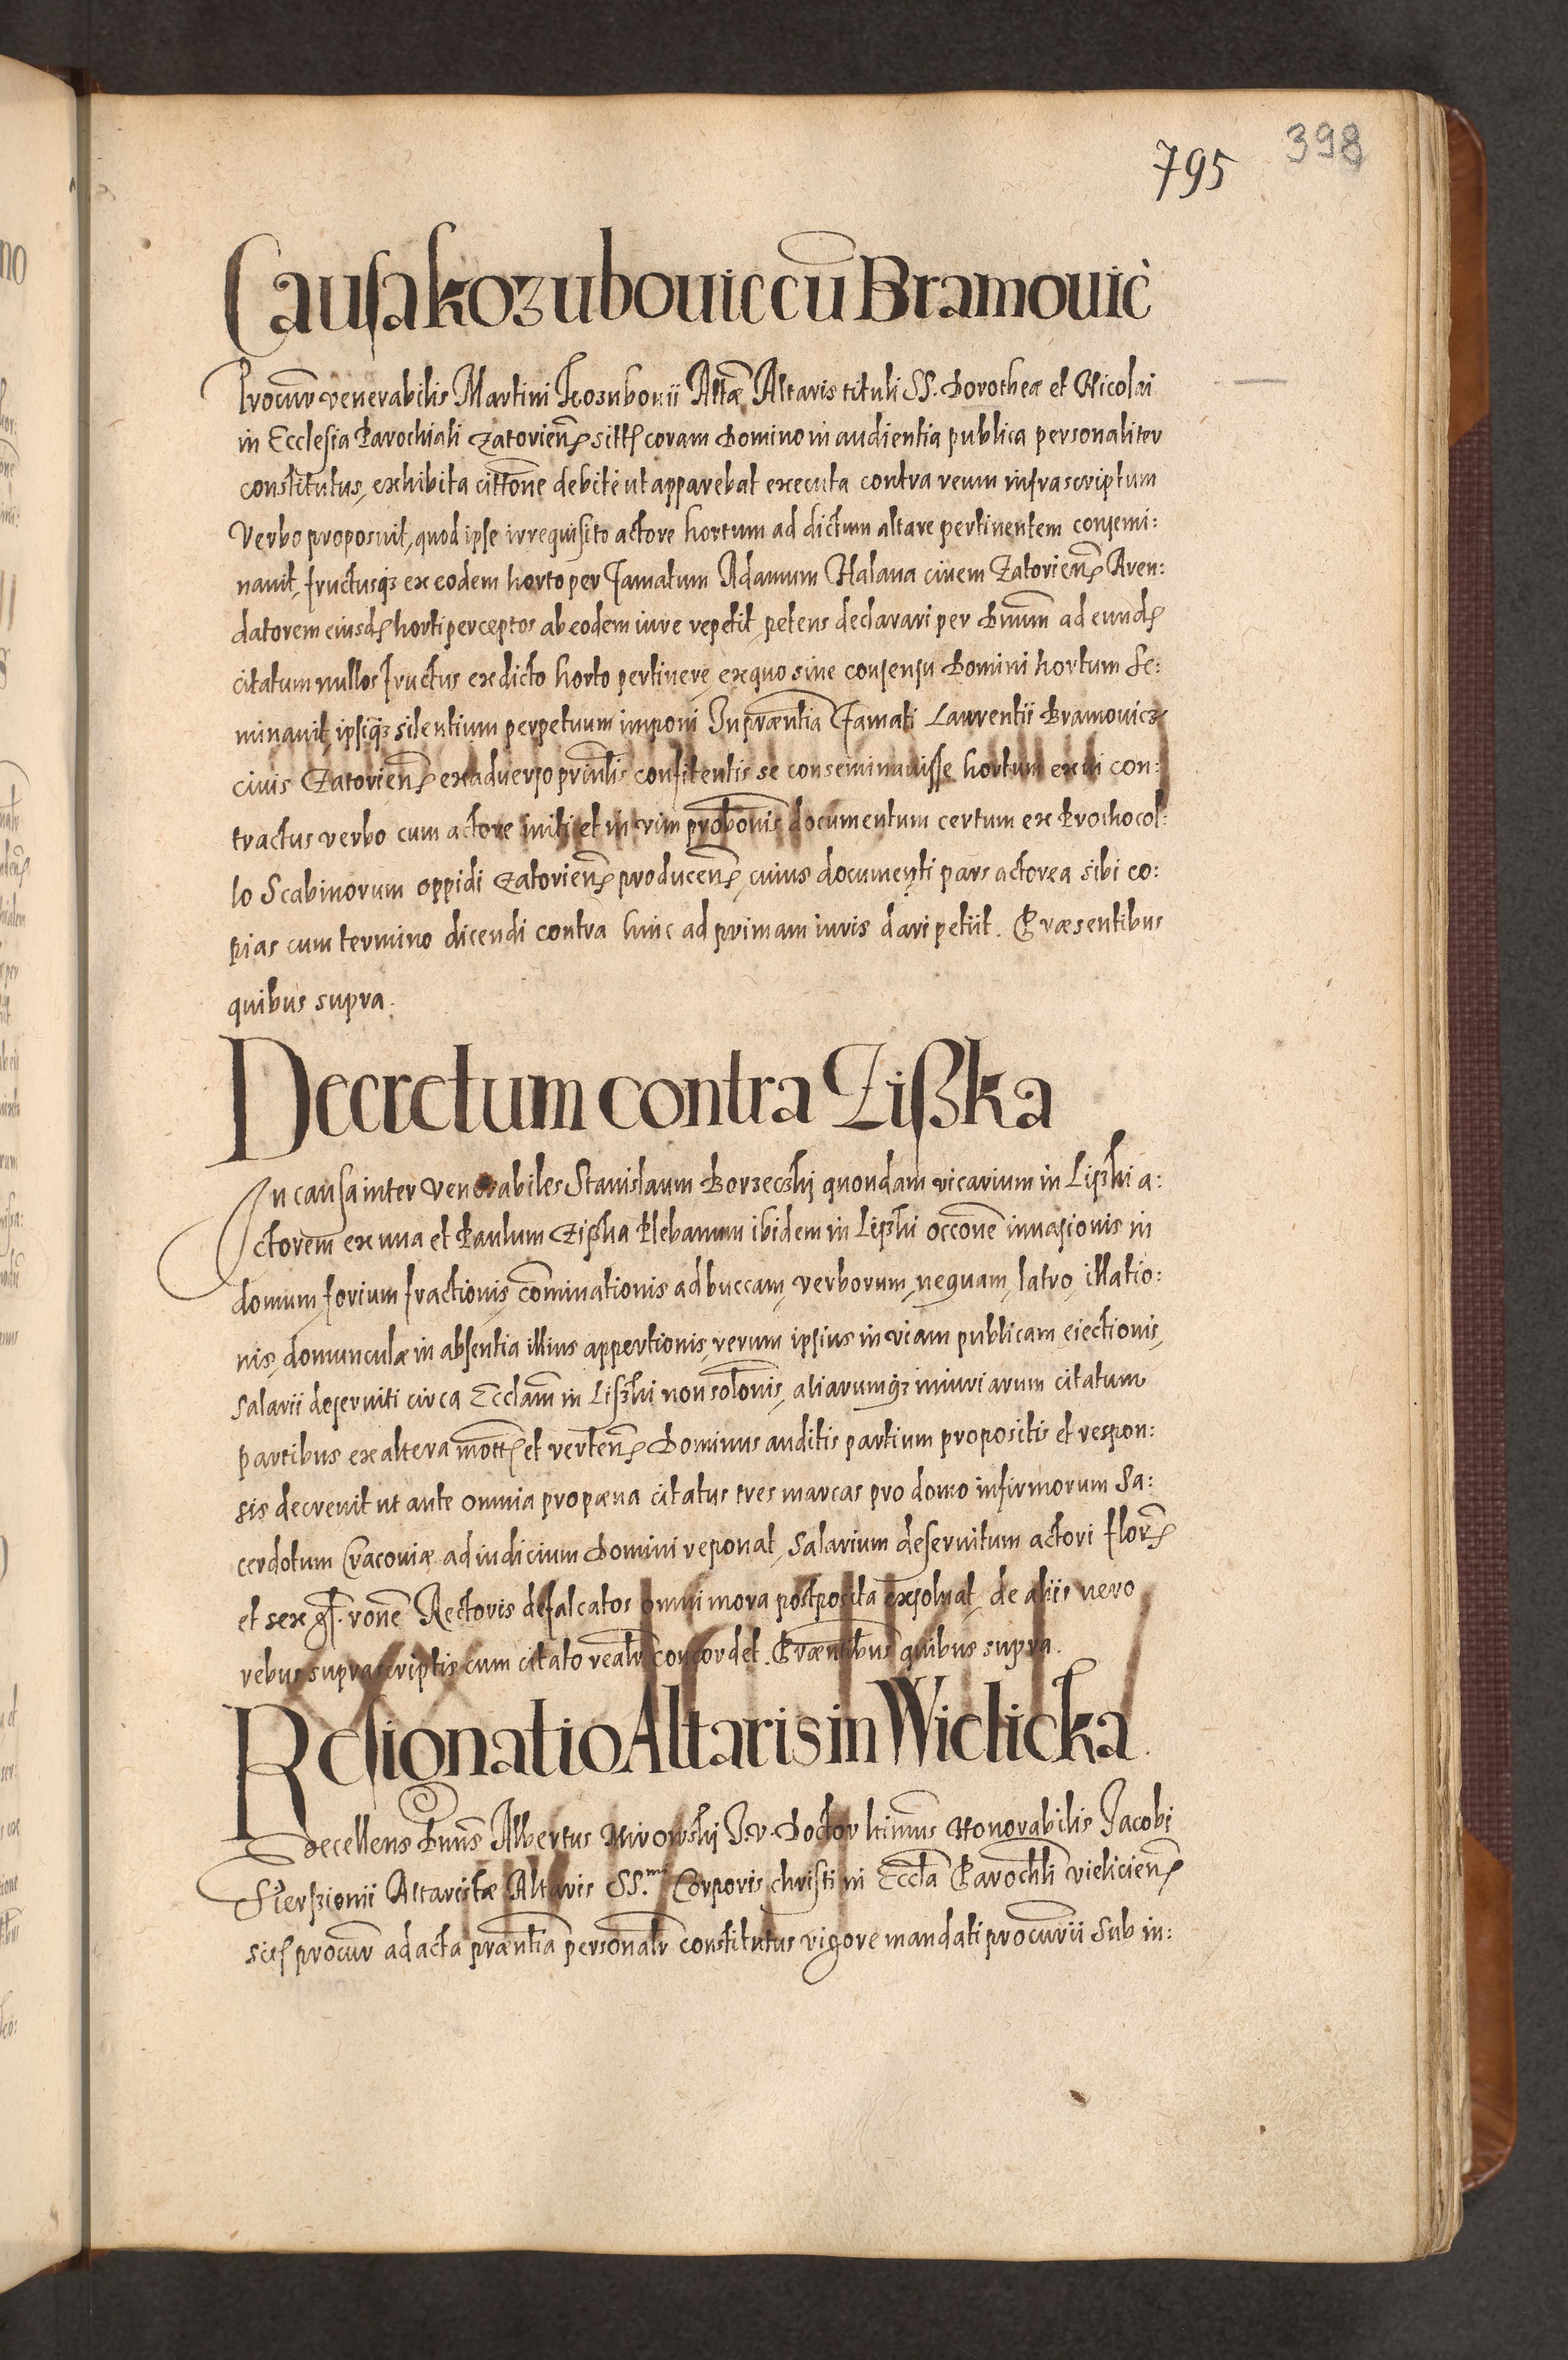 795 398
Causa Kozubouic cū Bramouic
Procur̄ venerabilis Martini Kozubouii Altæ Altaris tituli SS. Dorotheæ et Nicolai
in Ecclesia Parochiali Zatorien̄ sitt coram Domino in audientia publica personaliter
constitutus, exhibita cittōne debite ut apparebat executa contra reum infrascriptum
Verbo proposuit, quod ipse irrequisito actore hortum ad dictum altare pertinentem consemi:
nauit, fructusq3 ex eodem horto per famatum Adamum Halaua ciuem Zatorien̄ Aren:
datorem eiusd horti perceptos ab eodem iure repetit, petens declarari per Dnum ad eund
citatum nullos fructus ex dicto horto pertinere, ex quo sine consensu Domini hortum se:
minauit, ipsiq3 silentium perpetuum imponi In præntia famati Laurentii Bramouicz
ciuis Zatorien̄ ex aduerso prinlis confitentis se conseminauisse hortum ex di con:
tractus verbo cum actore initi et in vim probonis documentum certum ex Prothocol:
lo Scabinorum oppidi Zatorien̄ producen̄, cuius documenti pars actorea sibi co:
pias cum termino dicendi contra hinc ad primam iuris dari petiit. Præsentibus
quibus supra.
Decretum contra Zißka
In causa inter Venerabiles Stanislaum Borzeczkij quondam vicarium in Lißki a:
ctorem ex una et Paulum Zißka Plebanum ibidem in Lißki occōne inuasionis in
domum, forium fractionis, cominationis ad buccam, verborum, nequam, latro, illatio:
nis, domunculæ in absentia illius appertionis, rerum ipsius in viam publicam eiectionis,
salarii deseruiti circa Ecclām in Lißki non solonis, aliarumq3 iniuriarum citatum
partibus ex altera mott et verten̄ Dominus auditis partium propositis et respon:
sis decreuit ut ante omnia pro pæna citatus tres marcas pro domo infirmorum Sa:
cerdotum Cracouiæ ad iudicium Domini reponat, salarium deseruitum actori flor̄
et sex gſ. ronē Rectoris defalcatos omni mora postposita exsoluat, de aliis vero
rebus suprascriptis cum citato realr concordet. Præntibus quibus supra.
Resignatio Altaris in Wielicka.
Excellens Dnus Albertus Mirowskij J. v. Doctor ltimus Honorabilis Jacobi
Altaristæ Altaris SS.mi Corporis christi in Eccla Parochli vielicien̄
procur̄ ad acta præntia personalr constitutus vigore mandati procurii sub in: